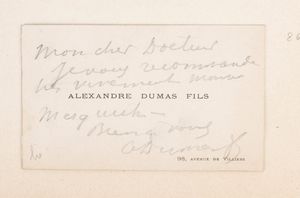 Mon cher Docteur
je vous recommande
très vivement
ALEXANDRE DUMAS FILS
Bien à vous
ADumas f
98, AVENUE DE VILLIERS